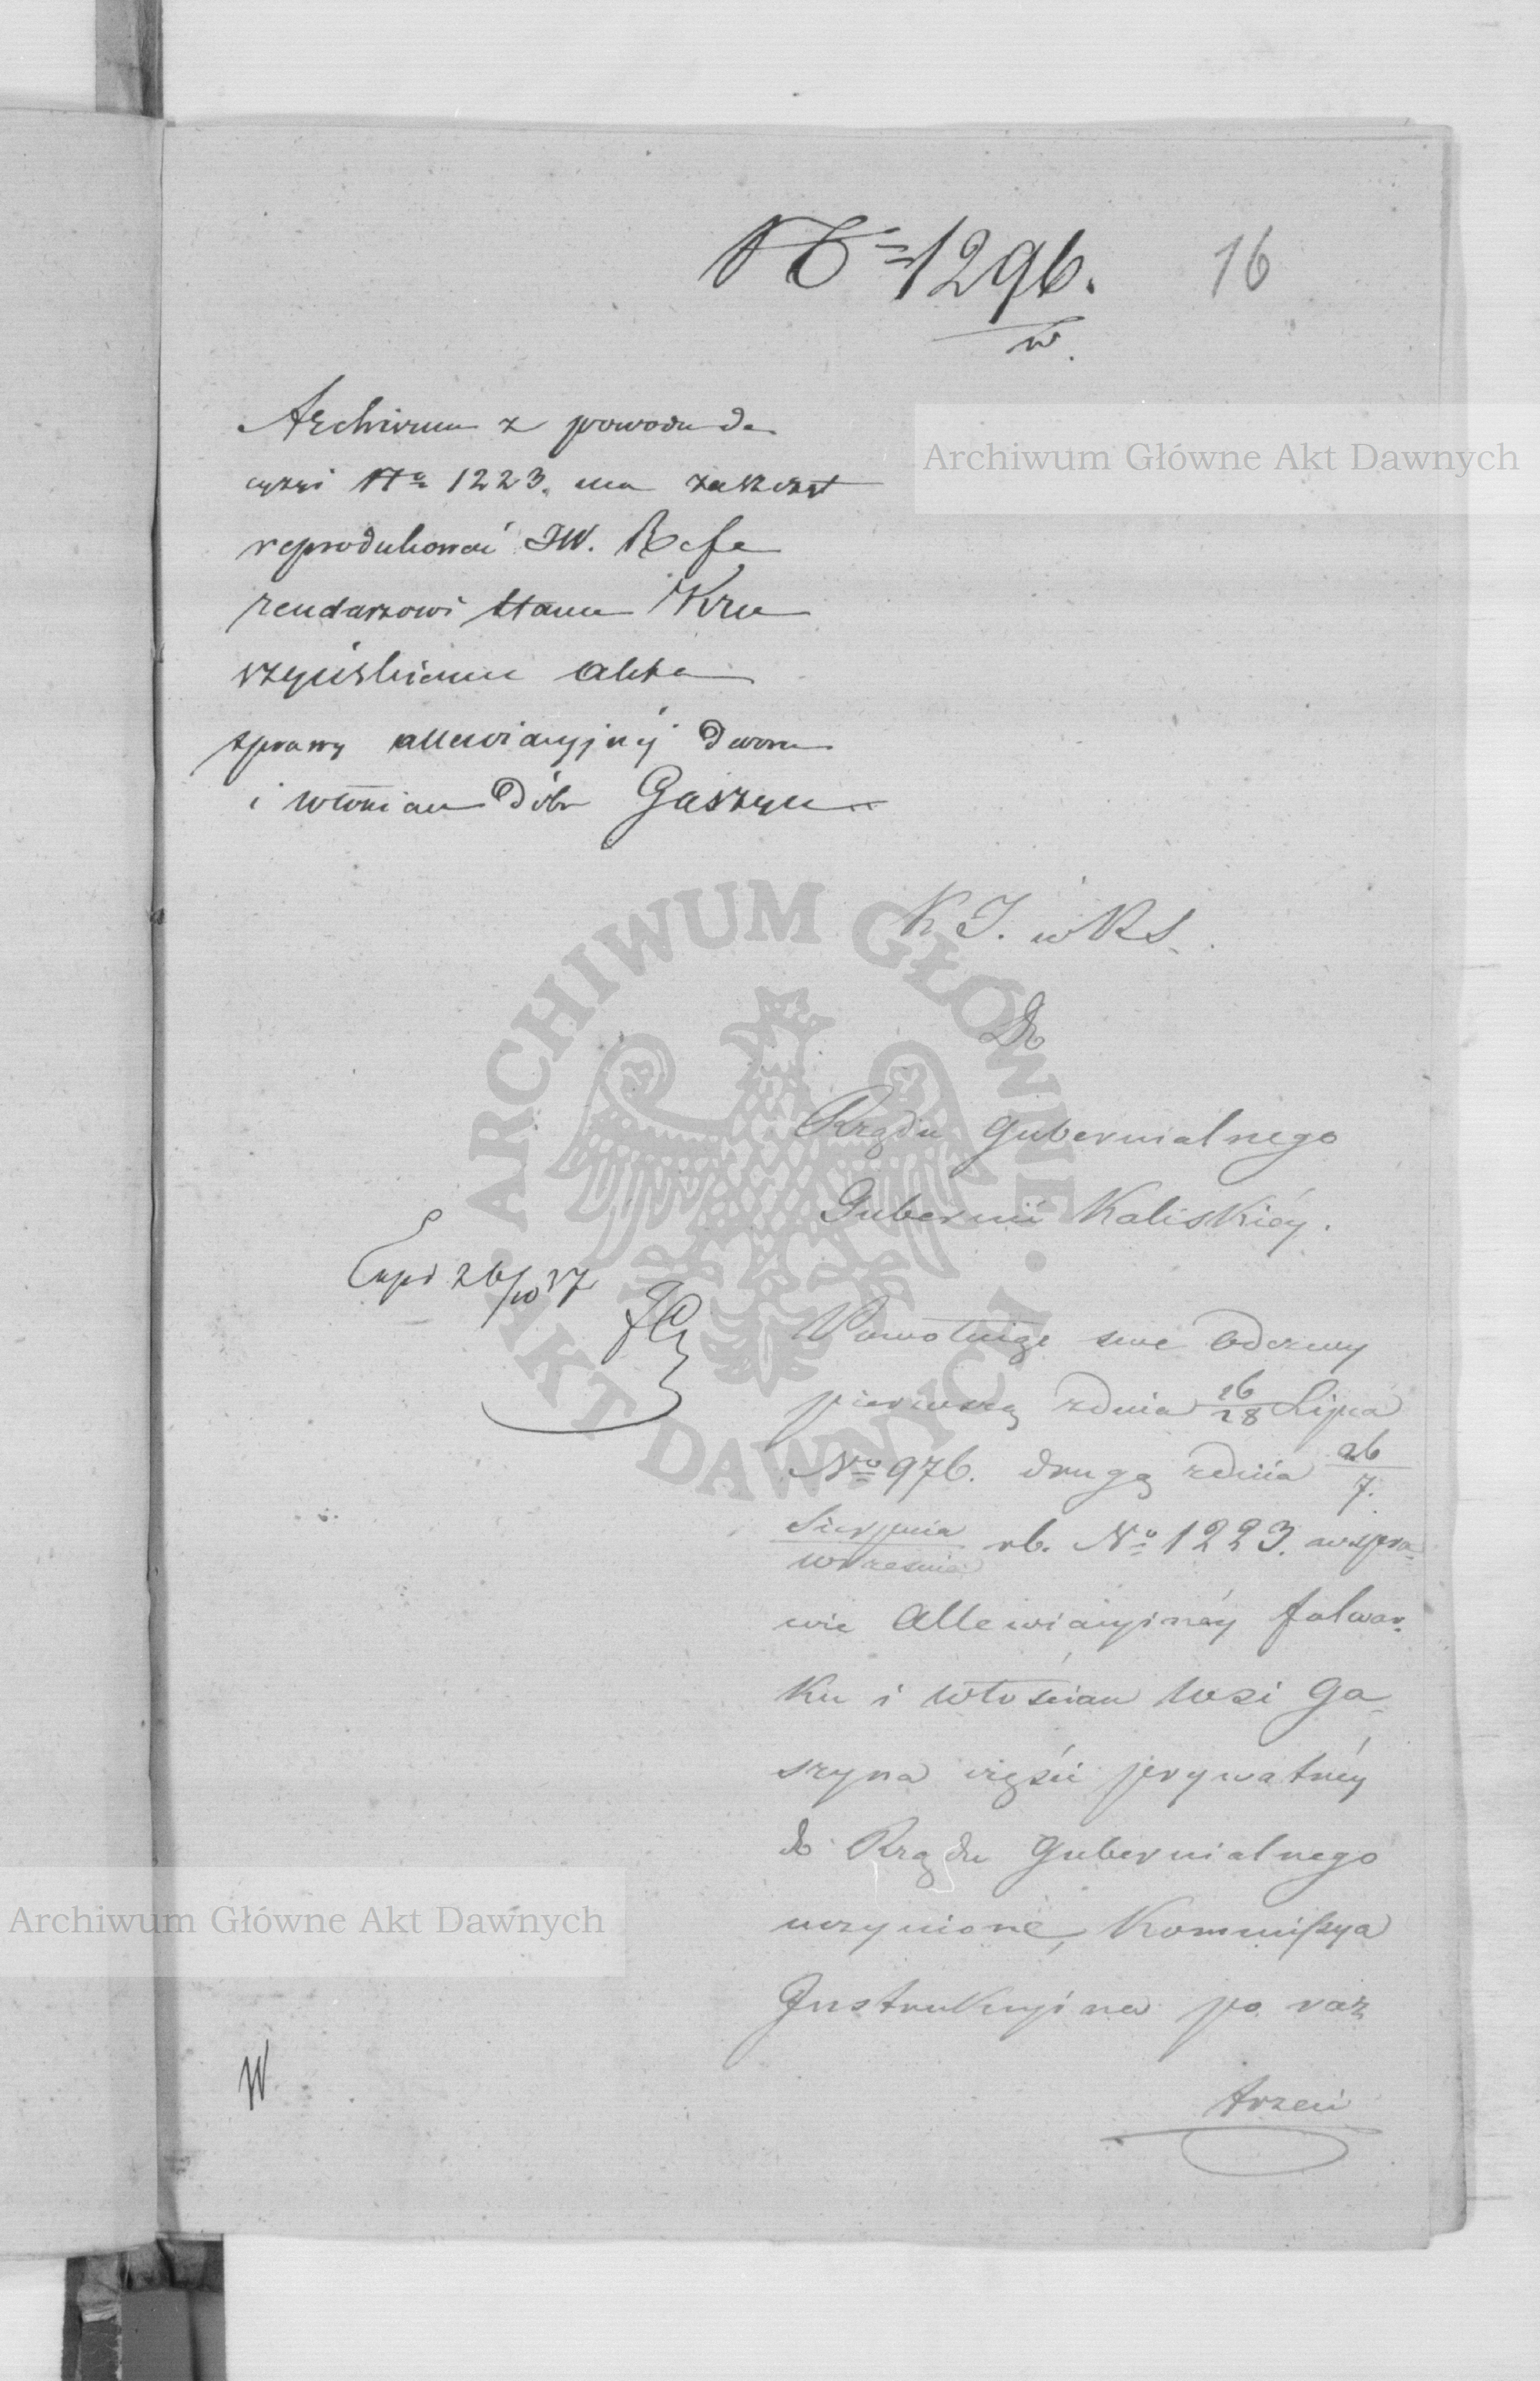 No 1296.
16
w.
Archiwum z powodu de
cyzyi No 1223. ma zaraz
reprodukować JW. Refe
rendarzowi Stanu Kru
szyńskiemu akta
sprawy allewiacyjnéj dworu
i włościan Dóbr Gaszyn
K J. w RS.
Do
Rządu Gubernialnego
Gubernii Kaliskiéy.
Exped 26/10 37
Powołując swe Odezwy
pierwszą z dnia 16/28 Lipca
No 976. drugą z dnia 26/7.
Sierpnia/Września rb. No 1223. w spra-
wie Allewiacyinéy folwar-
ku i włościan Wsi Ga-
szyna części prywatnéy
do Rządu Gubernialnego
uczynione, Kommissya
Instrukcyina po raz
trzeci
W
Archiwum Główne Akt Dawnych
ARCHIWUM GŁÓWNE AKT DAWNYCH
Archiwum Główne Akt Dawnych